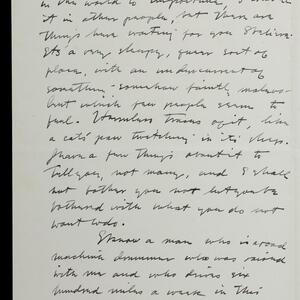 in the world to
it in other people, but there are
things here waiting for you I believe.
It's a very sleepy, queer sort of
place, with an undercurrent of
something - somehow faintly
but which few people seem to
feel. Harmless traces of it, like
a cat's paw twitching in its sleep.
I have a few things about it to
tell you, not many, and I shall
not bother you
bothered with what you do not
want to do.
I know a man who is a road
machine drummer who was raised
with me and who drives six
hundred miles a week in this